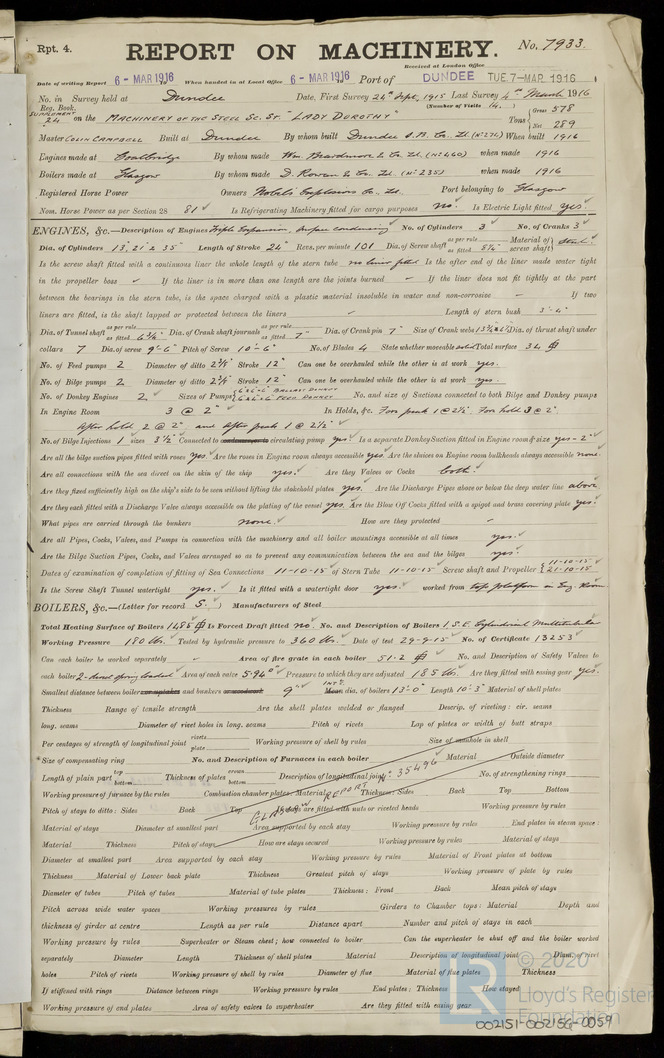 Rpt. 4.
REPORT ON MACHINERY.
No. 7933.
Received at London Office
Date of writing Report 6 - MAR 1916 When handed in at Local Office 6 - MAR 1916 Port of DUNDEE TUE. 7 - MAR 1916
No. in Survey held at Dundee Date, First Survey 24th Sept, 1915 Last Survey 4th March 1916
Reg. Book. (Number of Visits 14.)
SUPPLEMENT
24 on the MACHINERY OF THE STEEL SC. ST. "LADY DOROTHY" Tons Gross 578 Net 289
Master COLIN CAMPBELL Built at Dundee By whom built Dundee S.B. Co. Ld. (No 276) When built 1916
Engines made at Coatbridge By whom made Wm. Beardmore & Co. Ld. (No 460) when made 1916
Boilers made at Glasgow By whom made D. Rowan & Co. Ld. (No 235) when made 1916
Registered Horse Power Owners Nobels Explosives Co. Ld. Port belonging to Glasgow
Nom. Horse Power as per Section 28 81 Is Refrigerating Machinery fitted for cargo purposes no. Is Electric Light fitted yes.
ENGINES, &c.—Description of Engines Triple Expansion, surface condensing No. of Cylinders 3 No. of Cranks 3
Dia. of Cylinders 13" 21" 2 35" Length of Stroke 24" Revs. per minute 101 Dia. of Screw shaft as per rule as fitted 5 7/8" Material of screw shaft steel.
Is the screw shaft fitted with a continuous liner the whole length of the stern tube no liner fitted Is the after end of the liner made water tight
in the propeller boss If the liner is in more than one length are the joints burned If the liner does not fit tightly at the part
between the bearings in the stern tube, is the space charged with a plastic material insoluble in water and non-corrosive If two
liners are fitted, is the shaft lapped or protected between the liners Length of stern bush 3'-4"
Dia. of Tunnel shaft as per rule as fitted 6 3/4" Dia. of Crank shaft journals as per rule as fitted 7" Dia. of Crank pin 7" Size of Crank webs Dia. of thrust shaft under
collars 7 Dia. of screw 9'-6" Pitch of Screw 10'-6" No. of Blades 4 State whether moveable solid Total surface 34
No. of Feed pumps 2 Diameter of ditto 2 3/4" Stroke 12" Can one be overhauled while the other is at work yes.
No. of Bilge pumps 2 Diameter of ditto 2 3/4" Stroke 12" Can one be overhauled while the other is at work yes.
No. of Donkey Engines 2 Sizes of Pumps BALLAST DONKEY FEED DONKEY No. and size of Suctions connected to both Bilge and Donkey pumps
In Engine Room 3 @ 2" In Holds, &c. Fore peak 1 @ 2 1/2, Fore hold 3 @ 2"
After hold 2 @ 2", and After peak 1 @ 2 1/2"
No. of Bilge Injections 1 sizes 3 1/2" Connected to circulating pump yes. Is a separate Donkey Suction fitted in Engine room & size yes - 2"
Are all the bilge suction pipes fitted with roses yes. Are the roses in Engine room always accessible yes. Are the sluices on Engine room bulkheads always accessible none.
Are all connections with the sea direct on the skin of the ship yes. Are they Valves or Cocks both.
Are they fixed sufficiently high on the ship's side to be seen without lifting the stokehold plates yes. Are the Discharge Pipes above or below the deep water line above.
Are they each fitted with a Discharge Valve always accessible on the plating of the vessel yes. Are the Blow Off Cocks fitted with a spigot and brass covering plate yes.
What pipes are carried through the bunkers none. How are they protected
Are all Pipes, Cocks, Valves, and Pumps in connection with the machinery and all boiler mountings accessible at all times yes.
Are the Bilge Suction Pipes, Cocks, and Valves arranged so as to prevent any communication between the sea and the bilges yes.
Dates of examination of completion of fitting of Sea Connections 11-10-15 of Stern Tube 11-10-15 Screw shaft and Propeller 11-10-15 21-10-15
Is the Screw Shaft Tunnel watertight yes. Is it fitted with a watertight door yes. worked from top platform in Eng. Room
BOILERS, &c.—(Letter for record S.) Manufacturers of Steel
Total Heating Surface of Boilers 1485 Is Forced Draft fitted no. No. and Description of Boilers 1 S.E. Cylindrical Multitubular
Working Pressure 180 lbs. Tested by hydraulic pressure to 360 lbs. Date of test 29-9-15 No. of Certificate 13253
Can each boiler be worked separately Area of fire grate in each boiler 51.2 No. and Description of Safety Valves to
each boiler 2 - direct spring loaded Area of each valve 5.94 Pressure to which they are adjusted 185 lbs. Are they fitted with easing gear yes.
Smallest distance between boilers or uptakes and bunkers or woodwork 9" INT. Mean dia. of boilers 13'-0" Length 10'-3" Material of shell plates
Thickness Range of tensile strength Are the shell plates welded or flanged Descrip. of riveting: cir. seams
long. seams Diameter of rivet holes in long. seams Pitch of rivets Lap of plates or width of butt straps
Per centages of strength of longitudinal joint rivets plate Working pressure of shell by rules Size of manhole in shell
*Size of compensating ring No. and Description of Furnaces in each boiler Material Outside diameter
Length of plain part top bottom Thickness of plates crown bottom Description of longitudinal joint No. of strengthening rings
GLASGOW REPORT No. 35496
Working pressure of furnace by the rules Combustion chamber plates: Material Thickness: Sides Back Top Bottom
Pitch of stays to ditto: Sides Back Top If stays are fitted with nuts or riveted heads Working pressure by rules
Material of stays Diameter at smallest part Area supported by each stay Working pressure by rules End plates in steam space:
Material Thickness Pitch of stays How are stays secured Working pressure by rules Material of stays
Diameter at smallest part Area supported by each stay Working pressure by rules Material of Front plates at bottom
Thickness Material of Lower back plate Thickness Greatest pitch of stays Working pressure of plate by rules
Diameter of tubes Pitch of tubes Material of tube plates Thickness: Front Back Mean pitch of stays
Pitch across wide water spaces Working pressures by rules Girders to Chamber tops: Material Depth and
thickness of girder at centre Length as per rule Distance apart Number and pitch of stays in each
Working pressure by rules Superheater or Steam chest; how connected to boiler Can the superheater be shut off and the boiler worked
separately Diameter Length Thickness of shell plates Material Description of longitudinal joint Diam. of rivet
holes Pitch of rivets Working pressure of shell by rules Diameter of flue Material of flue plates Thickness
If stiffened with rings Distance between rings Working pressure by rules End plates: Thickness How stayed
Working pressure of end plates Area of safety valves to superheater Are they fitted with easing gear
© 2020
Lloyd's Register
Foundation
002151-002156-0059